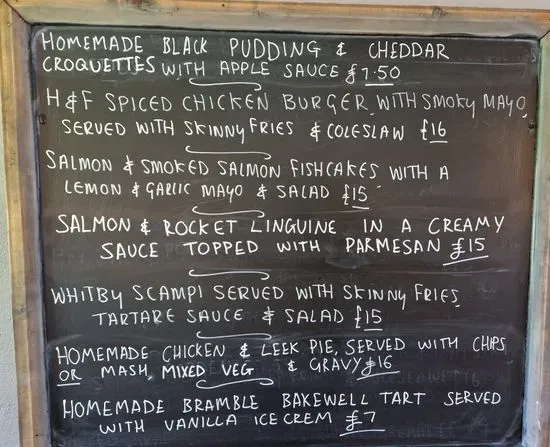 HOMEMADE BLACK PUDDING & CHEDDAR
CROQUETTES WITH APPLE SAUCE £7.50
H&F SPICED CHICKEN BURGER WITH SMOKY MAYO,
SERVED WITH SKINNY FRIES & COLESLAW £16
SALMON & SMOKED SALMON FISHCAKES WITH A
LEMON & GARLIC MAYO & SALAD £15
SALMON & ROCKET LINGUINE IN A CREAMY
SAUCE TOPPED WITH PARMESAN £15
WHITBY SCAMPI SERVED WITH SKINNY FRIES,
TARTARE SAUCE & SALAD £15
HOMEMADE CHICKEN & LEEK PIE, SERVED WITH CHIPS
OR MASH, MIXED VEG & GRAVY £16
HOMEMADE BRAMBLE BAKEWELL TART SERVED
WITH VANILLA ICE CREM £7